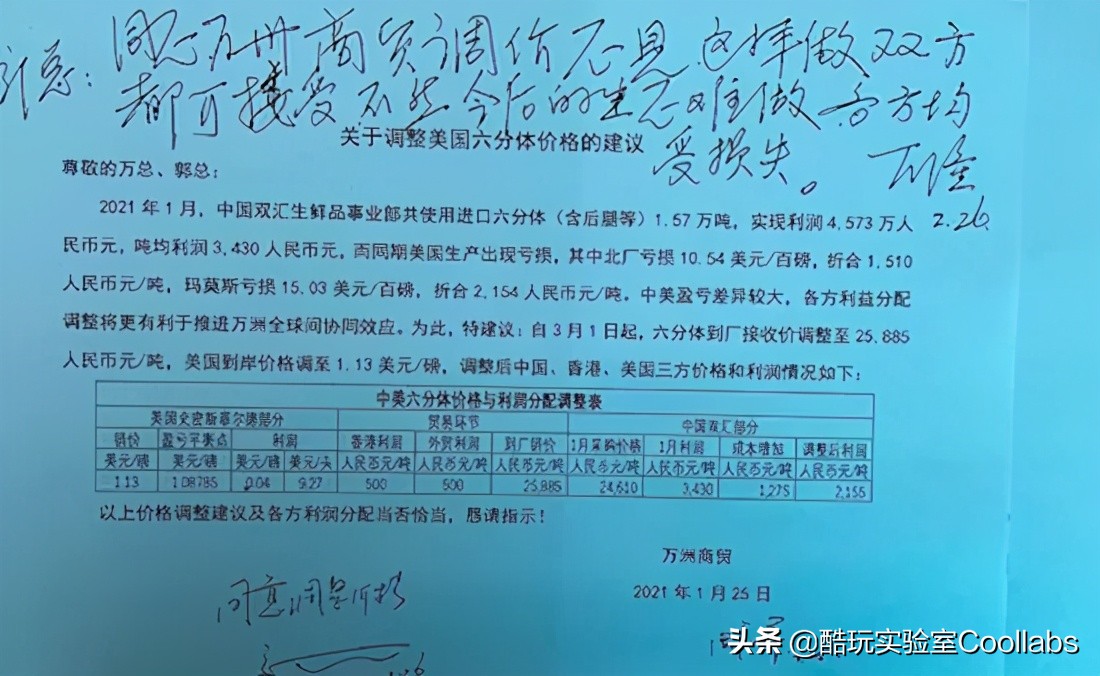 同意万洲商贸调价意见 这样做双方
都可接受 不然今后的生意难做 各方均
受损失。 万隆
2.26
关于调整美国六分体价格的建议
尊敬的万总、郭总：
2021年1月，中国双汇生鲜品事业部共使用进口六分体（含后腿等）1.57万吨，实现利润4,573万人
民币元，吨均利润3,430人民币元，而同期美国生产出现亏损，其中北厂亏损10.54美元/百磅，折合1,510
人民币元/吨，玛莫斯亏损15.03美元/百磅，折合2,154人民币元/吨，中美盈亏差异较大，各方利益分配
调整将更有利于推进万洲全球间协同效应。为此，特建议：自3月1日起，六分体到厂接收价调整至25,885
人民币元/吨，美国到岸价格调至1.13美元/磅，调整后中国、香港、美国三方价格和利润情况如下：
中美六分体价格与利润分配调整表
美国史密斯菲尔德部分 贸易环节 中国双汇部分
销价 盈亏平衡点 利润 香港利润 外贸利润 到厂销价 1月采购价格 1月利润 成本增加 调整后利润
美元/磅 美元/磅 美元/磅 美元/头 人民币元/吨 人民币元/吨 人民币元/吨 人民币元/吨 人民币元/吨 人民币元/吨 人民币元/吨
1.13 1.08785 0.04 9.27 500 500 25,885 24,610 3,430 1,275 2,155
以上价格调整建议及各方利润分配当否恰当，恳请指示！
万洲商贸
2021年1月25日
同意调整价格
头条 @酷玩实验室Coollabs